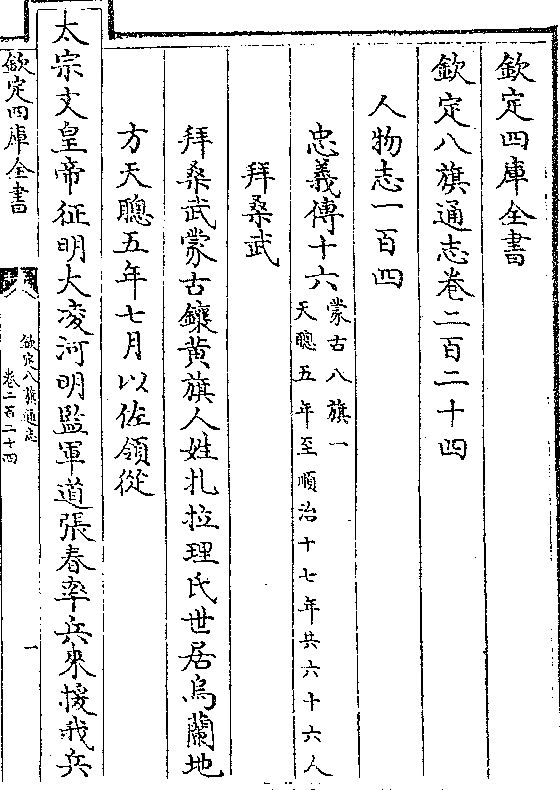 欽定四庫全書
欽定八旗通志卷二百二十四
人物志一百四
忠義傳十六蒙古八旗一
天聰五年至順治十七年共六十六人
拜桑武
拜桑武蒙古鑲黄旗人姓扎拉理氏世居烏蘭地
方天聰五年七月以佐領從
太宗文皇帝征明大凌河明監軍道張春率兵來援我兵
欽定四庫全書
欽定八旗通志
卷二百二十四
一